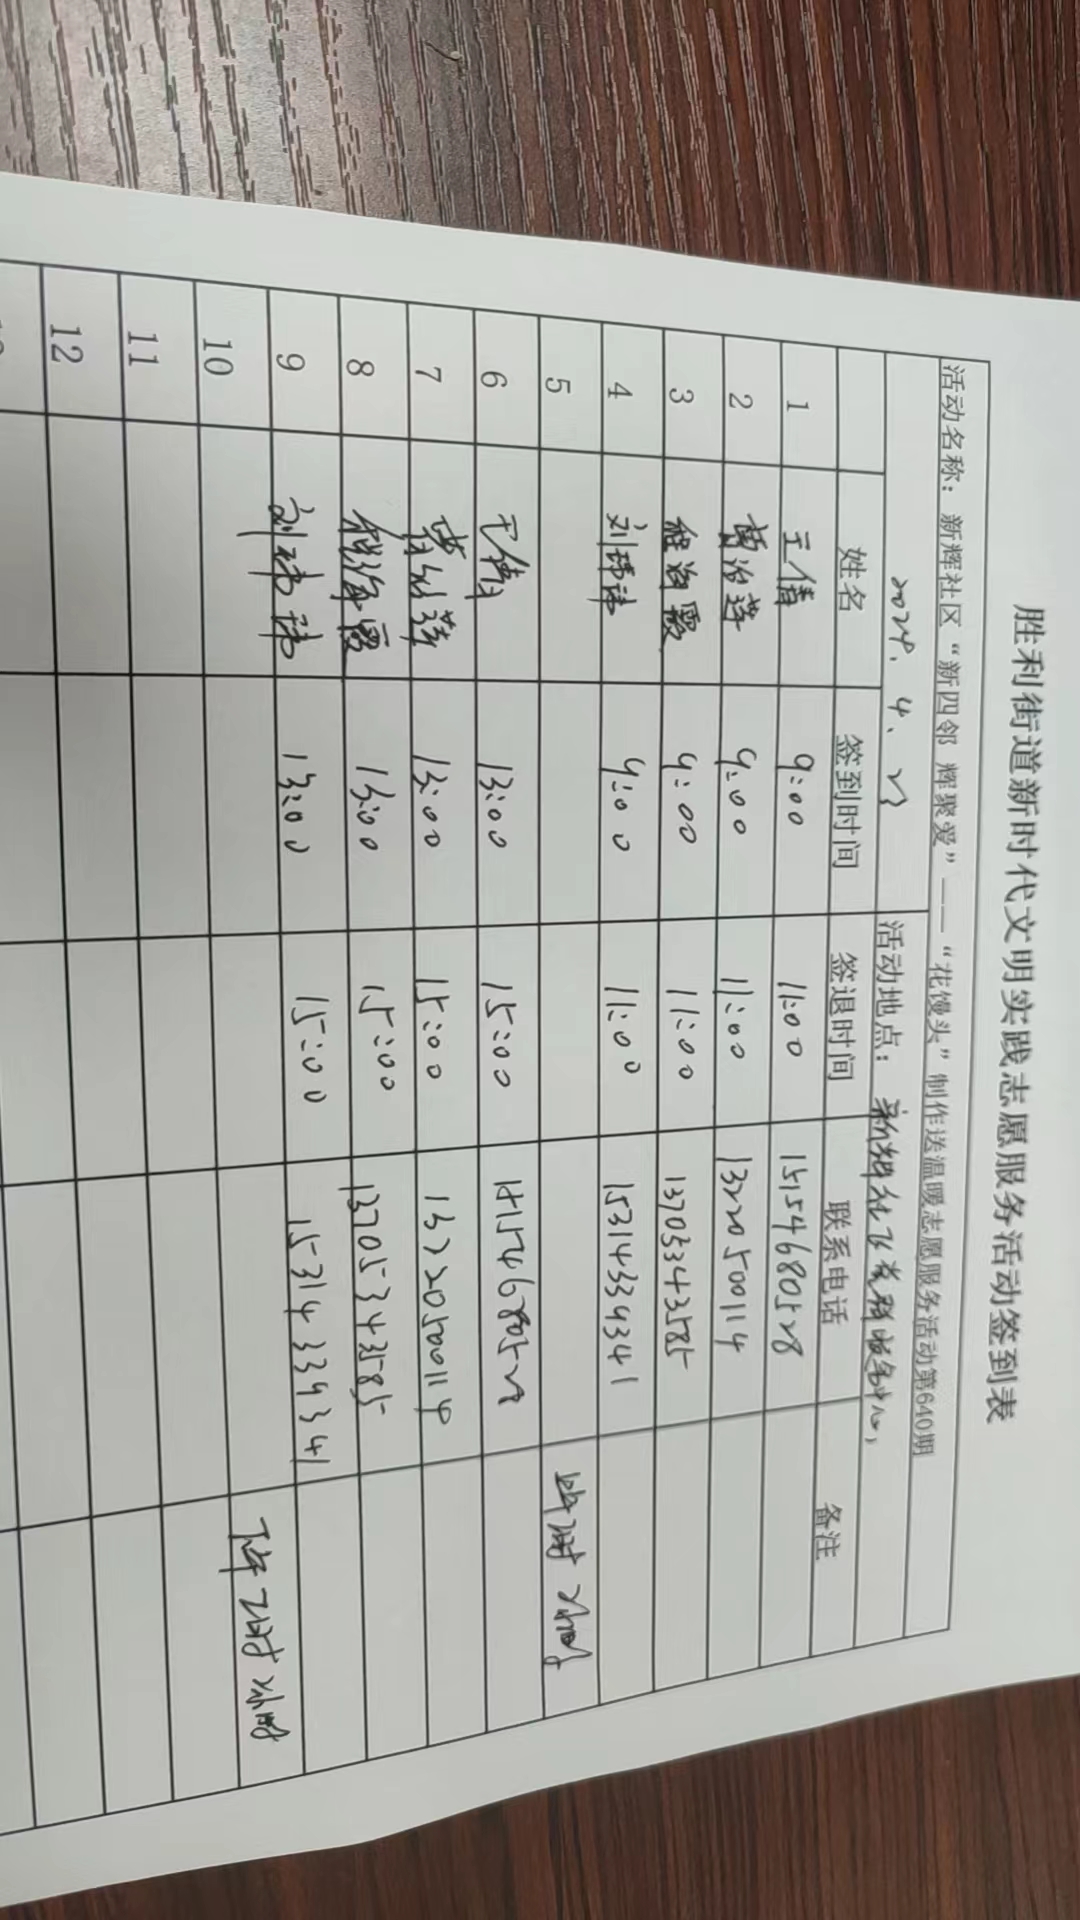 胜利街道新时代文明实践志愿服务活动签到表
活动名称：新辉社区“新四邻 辉聚爱”——“花馍头”制作送温暖志愿服务活动第640期
2024.4.23 活动地点：新辉社区党群服务中心
姓名 签到时间 签退时间 联系电话 备注
1 王倩 9:00 11:00 15154680528
2 9:00 11:00 13220500114
3 程海霞 9:00 11:00 13705343585
4 刘玮玮 9:00 11:00 15314339341
5 2小时
6 王倩 13:00 15:00
7 13:00 15:00 13220500114
8 程海霞 13:00 15:00 13705343585
9 刘玮玮 13:00 15:00 15314339341
10 下午 2小时
11
12